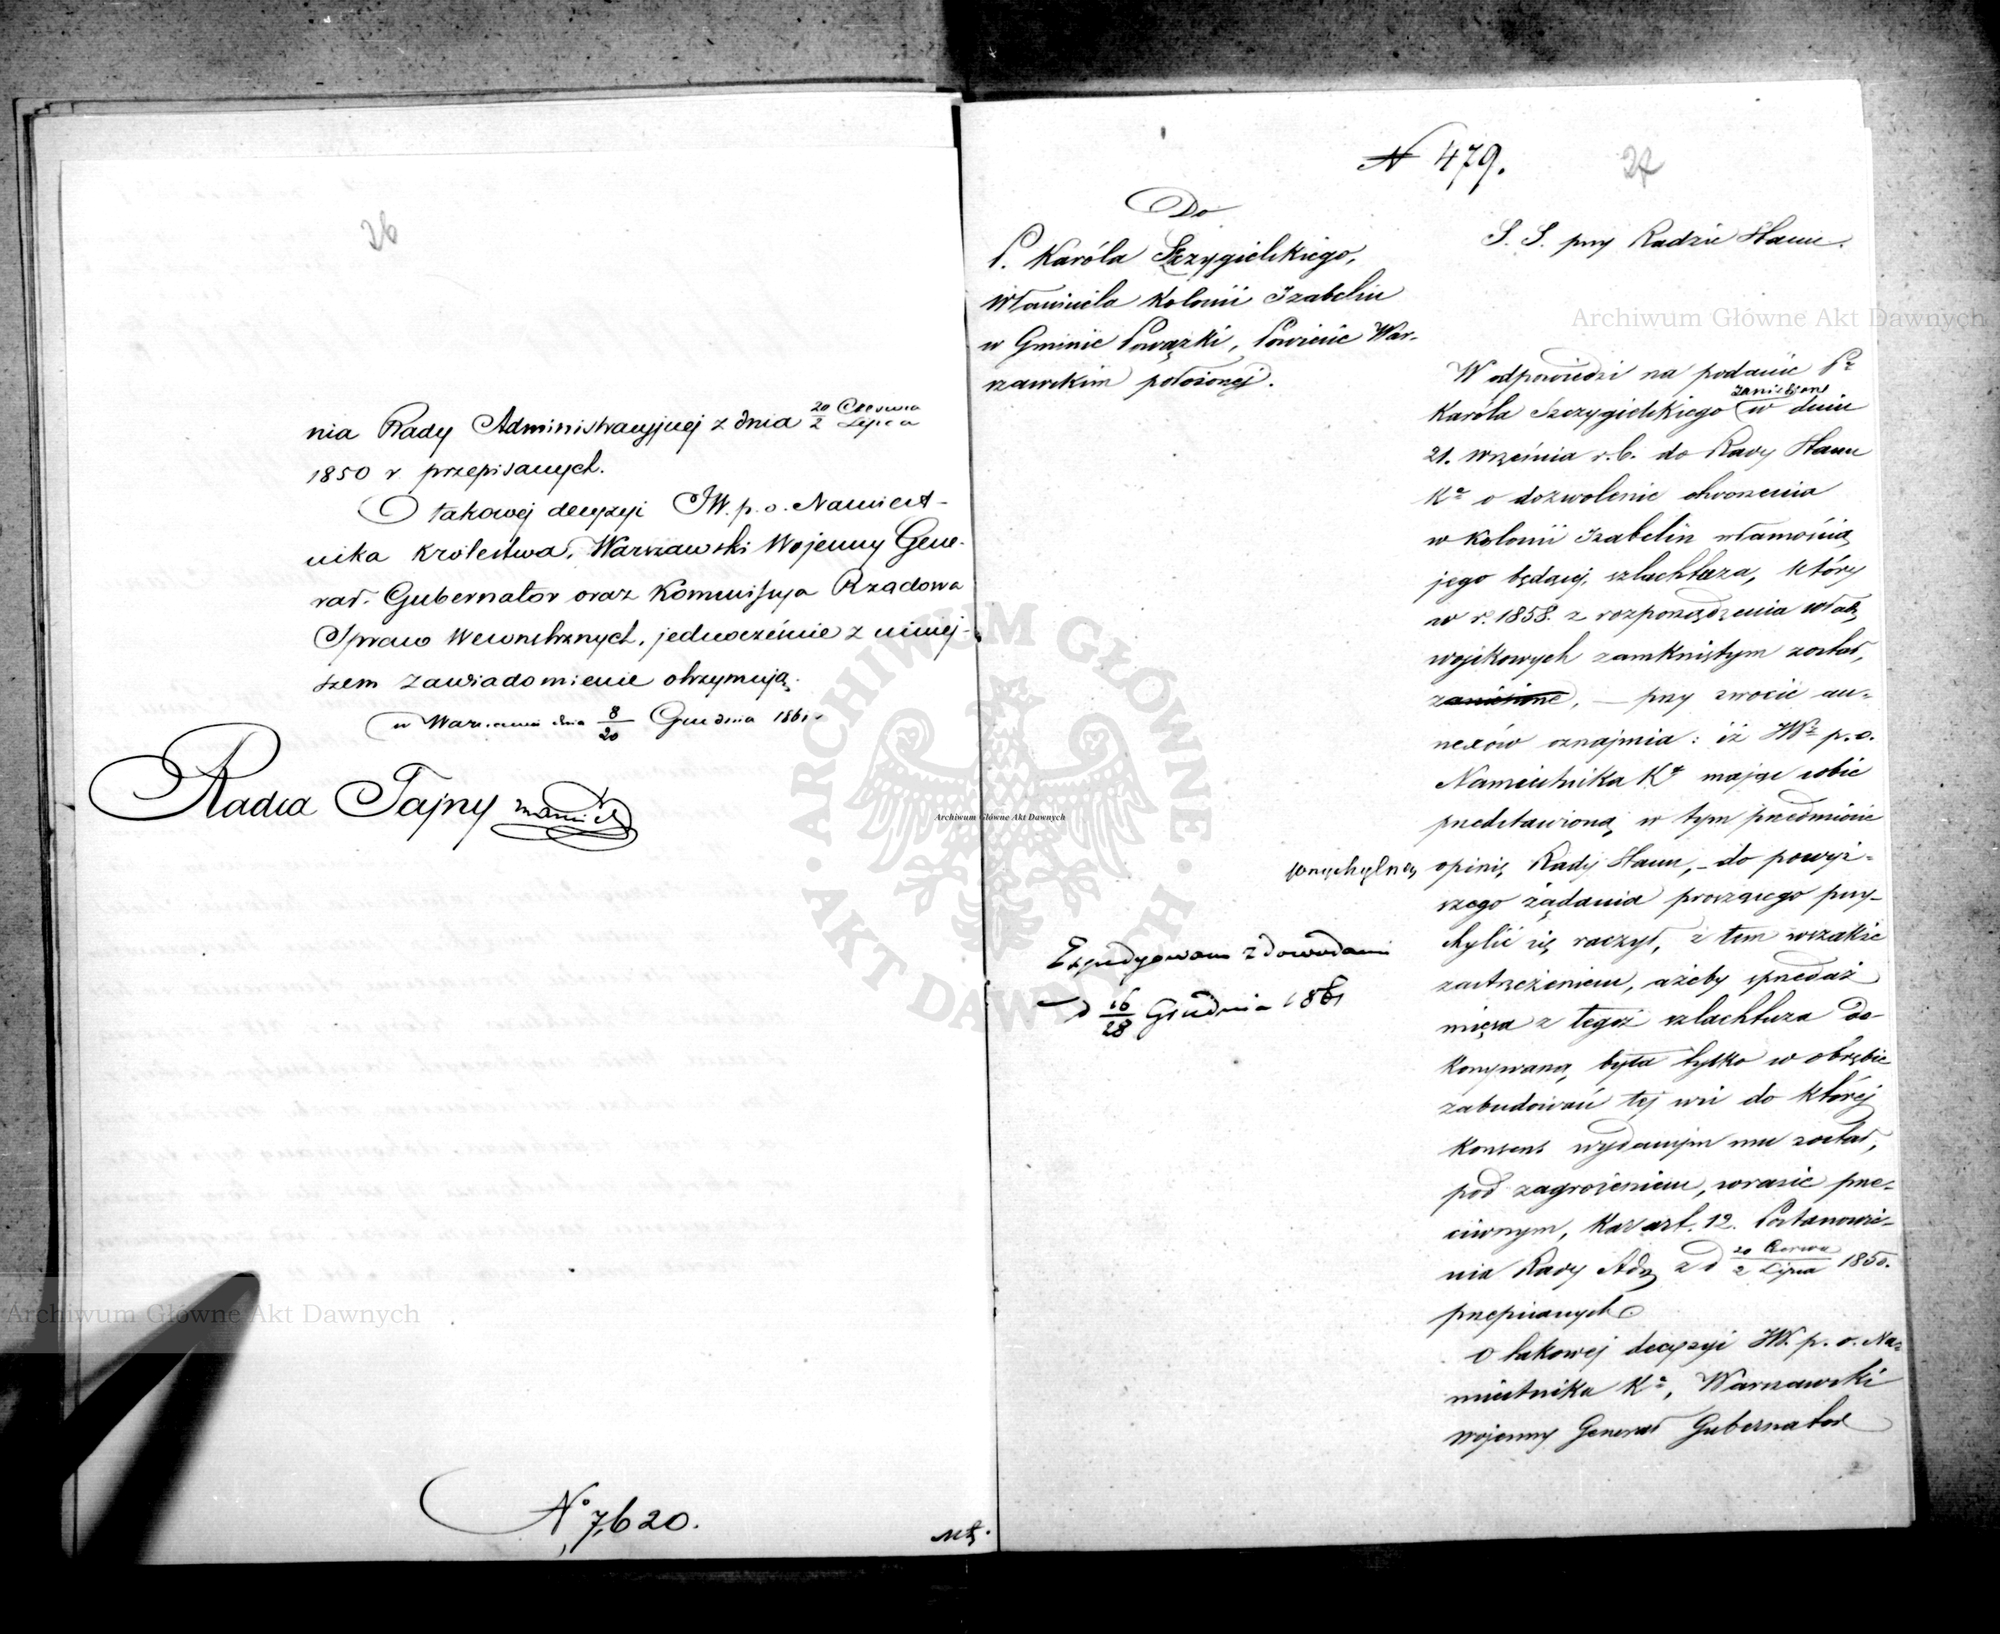 26
nia Rady Administracyjnej z dnia 20 Czerwca / 2 Lipca
1850 r przepisanych.
O takowej decyzyi JW. p. o. Namiest-
nika Królestwa, Warszawski Wojenny Gene-
rał. Gubernator oraz Kommissya Rządowa
Spraw Wewnętrznych, jednocześnie z niniej-
szem zawiadomienie otrzymują.
w Warszawie dnia 8/20 Grudnia 1861 r
Radca Tajny
No 7,620.
N 479.
27
Do
P. Karóla Szczygielskiego,
Właściciela Kolonii Izabelin
w Gminie Powązki, Powiecie War-
szawskim położonej.
S. S. przy Radzie Stanu.
W odpowiedzi na podanie Pa
zaniesione
Karóla Szczygielskiego w dniu
21. Września r. b. do Rady Stanu
Ka o dozwolenie otworzenia
w Kolonii Izabelin własnością
jego będącej, szlachtuza, który
w r. 1858. z rozporządzenia władz
wojskowych zamkniętym został,
zaniesione, — przy zwrocie an-
nexów oznajmia: iż JW. p. o.
Namiestnika Ka mając sobie
przedstawioną w tym przedmiocie
przychylną
opinię Rady Stanu, – do powyż-
szego żądania proszącego przy-
chylić się raczył, z tem wszakże
zastrzeżeniem, ażeby sprzedaż
mięsa z tegoż szlachtuza do-
konywaną była tylko w obrębie
zabudowań tej wsi do której
konsens wydanym mu został,
pod zagrożeniem, w razie prze-
ciwnym, kar art. 12. Postanowie-
nia Rady Adm z d 20 Czerwca / 2 Lipca 1850.
przepisanych
O takowej decyzyi JW. p. o. Na-
miestnika Ka, Warszawski
wojenny Generał Gubernator
Expedyowano z dowodami
d 16/28 Grudnia 1861
Archiwum Główne Akt Dawnych
Archiwum Główne Akt Dawnych
Archiwum Główne Akt Dawnych
ARCHIWUM GŁÓWNE · AKT DAWNYCH ·